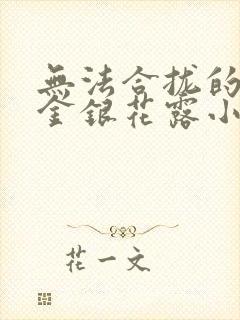 無法合拢的
金銀花露小
花一文